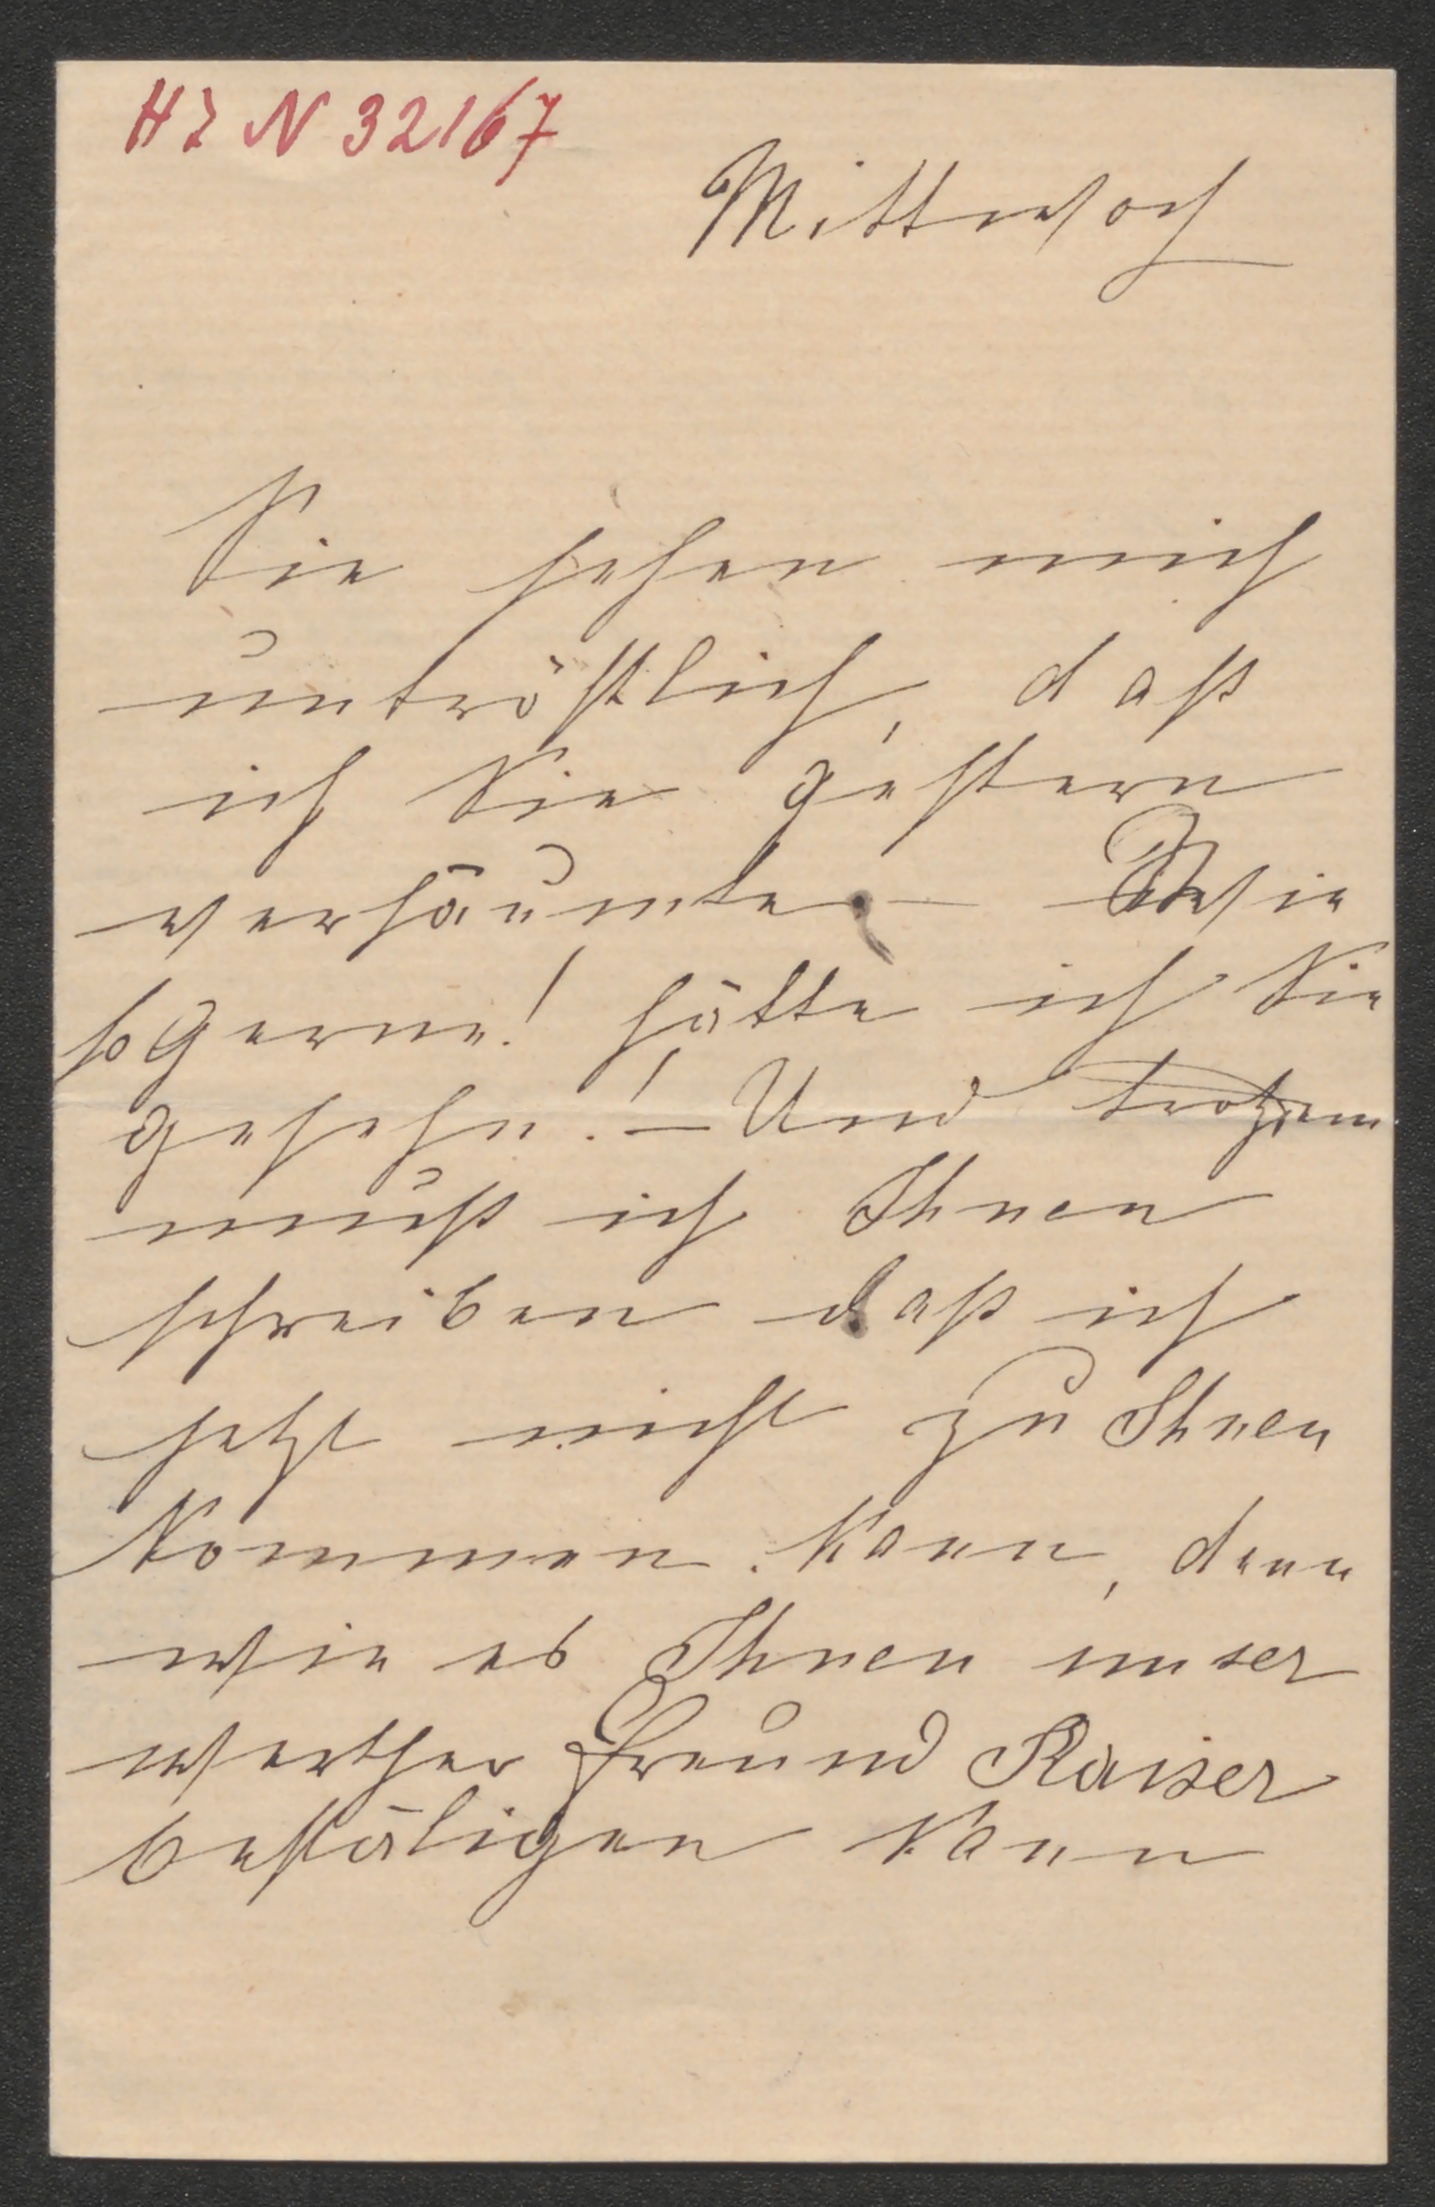 H I N 32167
Mittwoch
Sie sehen mich
untröstlich, daß
ich Sie gestern
versäumte – Wie
so gerne! hätte ich Sie
gesehn! – Und trotzdem
muß ich Ihnen
schreiben daß ich
jetzt nicht zu Ihnen
kommen kann, denn
wie es Ihnen unser
werther Freund Kaiser
bestätigen kann